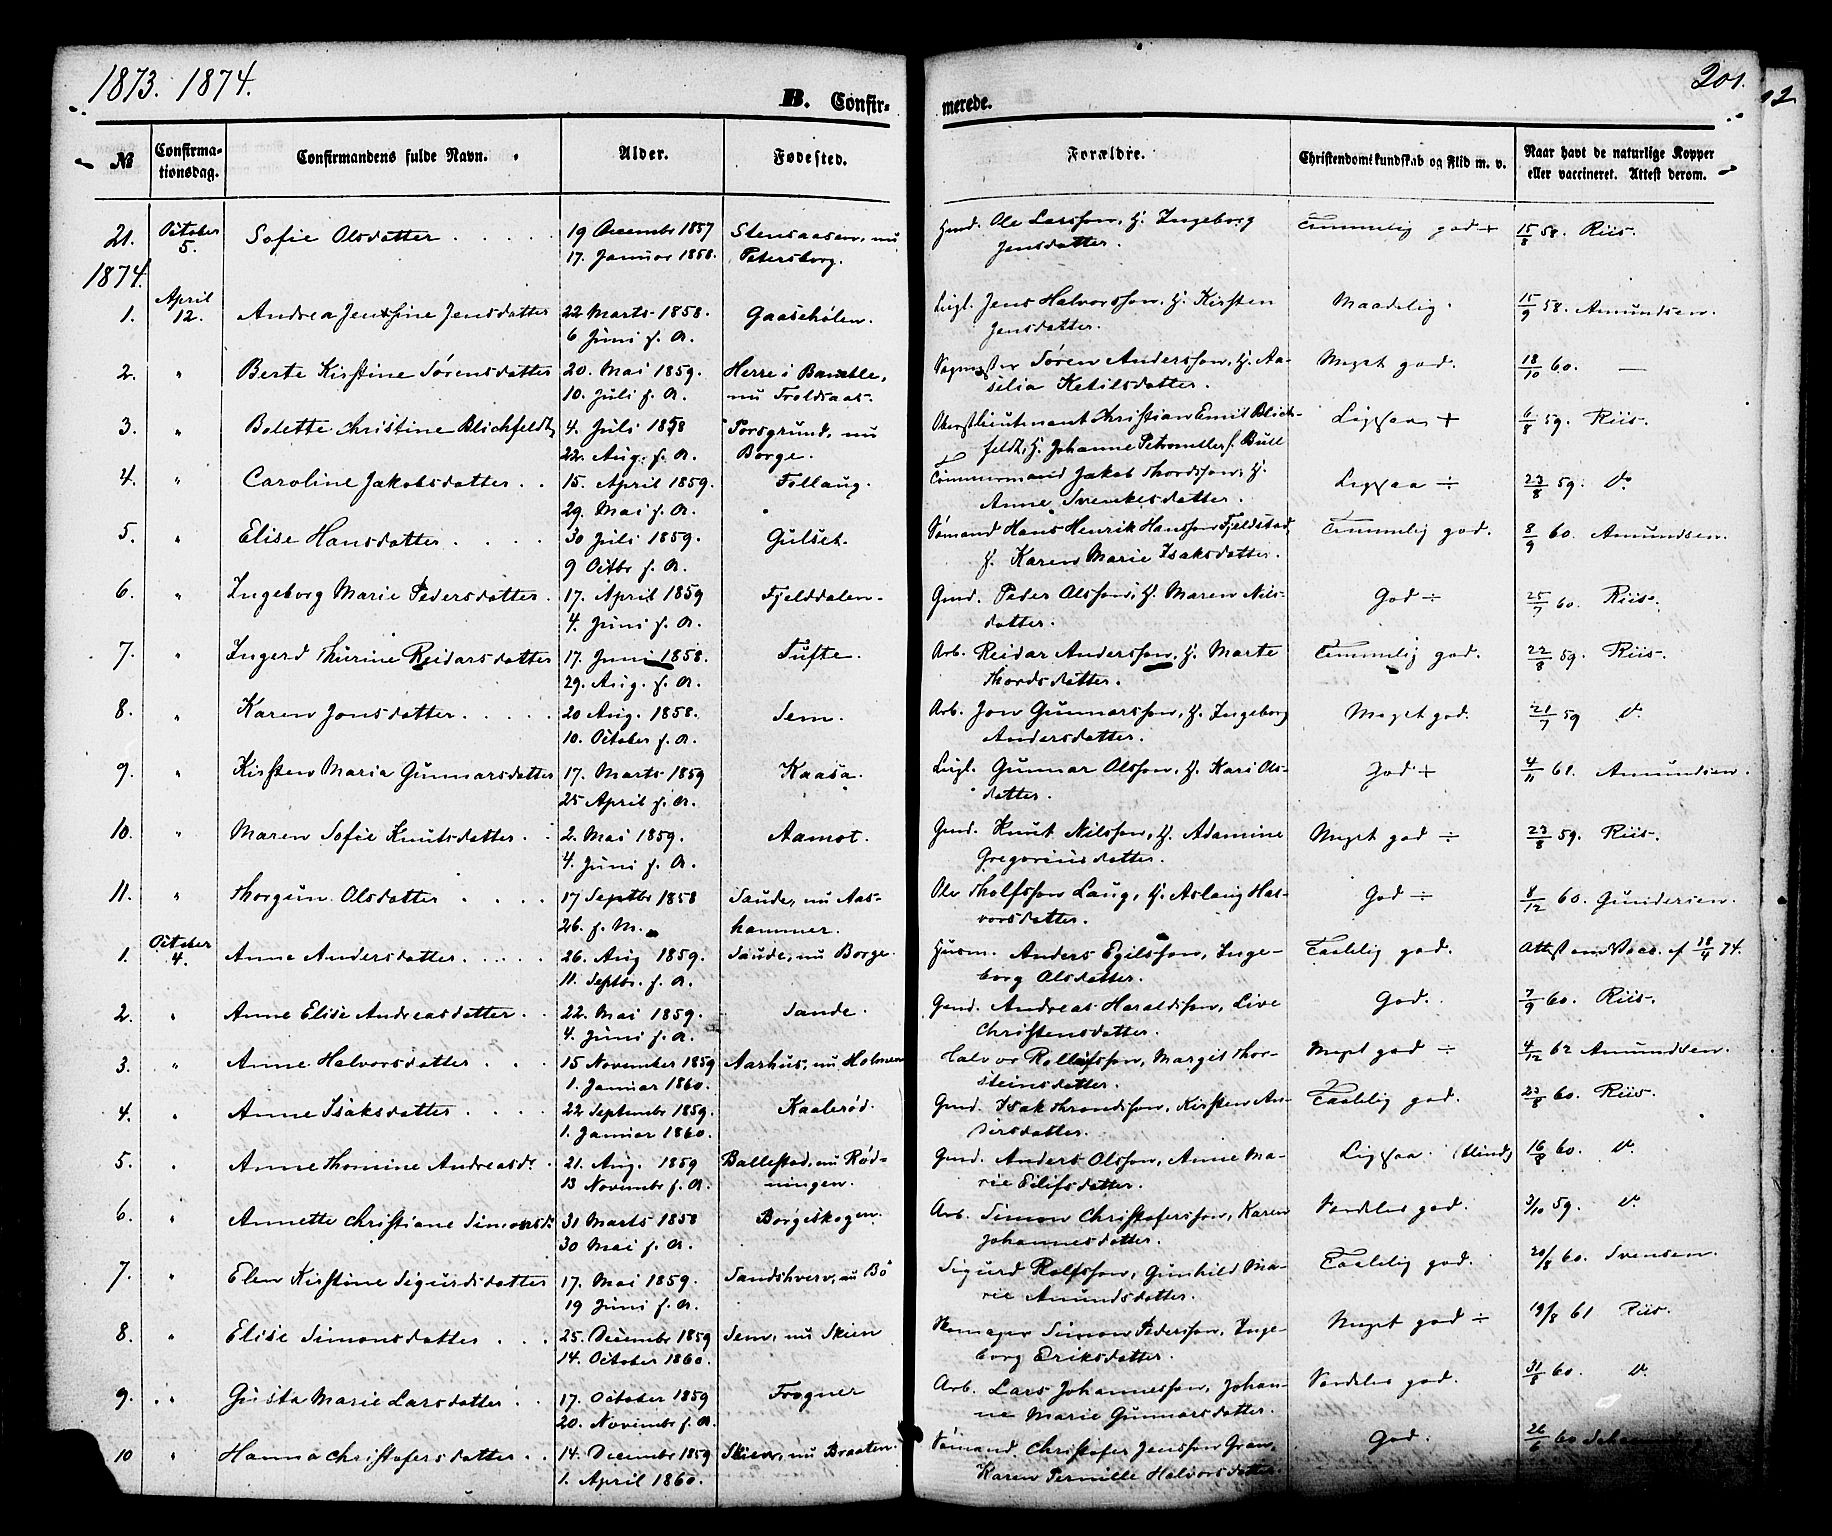 1873. 1874.
201.
B. Confir-
merede.
№ Confirma-
tionsdag. Confirmandens fulde Navn. Alder. Fødested. Forældre. Christendomskundskab og Flid m. v. Naar havt de naturlige Kopper
eller vaccineret. Attest derom.
21. October 5. Sofie Olsdatter 19 December 1857 Stensaasen, nu Gmd. Ole Larssøn, H. Ingeborg Temmelig god + 15/8 58. Riis.
17. Januar 1858. Petersborg. Jensdatter.
1874.
1. April 12. Andrea Jensine Jensdatter 22 Marts 1858. Gaasehølen. Leigl. Jens Halvorssøn, H. Kirsten Maadelig. 15/9 58. Amundsen.
6 Juni s. A. Jensdatter.
2. " Berte Kirstine Sørensdatter 20. Mai 1859. Herre i Bamble, Søren Anderssøn, H. Aa- Meget god. 18/10 60. —
10. Juli s. A. nu Troldsaas. silia Ketilsdatter.
3. " Bolette Christine Blichfeldt 4. Juli 1858 Porsgrund, nu Oberstlieutenant Christian Emil Blich- Ligesaa + 6/8 59. Riis.
22. Aug. s. A. Borge. feldt, H. Johanne Petronelle f. Bull
4. " Caroline Jakobsdatter 15. April 1859. Follaug. Tømmermand Jakob Thordssøn, H. Ligesaa ÷ 23/8 59. do
29. Mai s. A. Anne Svenkesdatter.
5. " Elise Hansdatter 30 Juli 1859. Gulset. Sømand Hans Henrik Hanssøn Fjeldstad, Temmelig god. 8/9 60. Amundsen.
9 Octbr s. A. H. Karen Marie Isaksdatter.
6. " Ingeborg Marie Pedersdatter 17. April 1859 Fjelddalen. Gmd. Peder Olssøn, H. Maren Nils- God ÷ 25/7 60. Riis.
4. Juni s. A. datter.
7. " Ingerd Thurine Reidarsdatter 17. Juni 1858. Tufte. Arb. Reidar Anderssøn, H. Marte Temmelig god. 22/8 59. Riis.
29. Aug. s. A. Thordsdatter.
8. " Karen Jonsdatter 20 Aug. 1858. Sem. Arb. Jon Gunnarssøn, H. Ingeborg Meget god. 21/7 59 do
10. October s. A. Andersdatter.
9. " Kirsten Maria Gunnarsdatter 17. Marts 1859 Kaasa. Leigl. Gunnar Olssøn, H. Kari Ols- God + 4/11 61. Amundsen.
25 April s. A. datter.
10. " Maren Sofie Knutsdatter 2. Mai 1859. Aamot. Gmd. Knut Nilssøn, H. Adamine Meget god ÷ 23/8 59. Riis.
4. Juni s. A. Gregoriusdatter.
11. " Thorgun Olsdatter 17 Septbr 1858 Saude, nu Aas- Ole Tholfssøn Laug, H. Aslaug Hal- God ÷ 8/12 60. Gundersen.
26. s. M. hammer. vorsdatter.
1. October 4. Anne Andersdatter 26. Aug 1859. Saude, nu Borge. Husm. Anders Egilssøn, Inge- Taalelig god. Attest om Vacc. af 18/4 74.
11. Septbr. s. A. borg Olsdatter.
2. " Anne Elise Andreasdatter 22. Mai 1859. Sande. Gmd. Andreas Haraldssøn, Live God. 7/9 60. Riis.
4. Juni s. A. Christensdatter.
3. " Anne Halvorsdatter 15 November 1859 Aarhus, nu Holmen Halvor Rolleifssøn, Margit Thor- Meget god ÷ 4/12 62 Amundsen.
1. Januar 1860. steinsdatter.
4. " Anne Isaksdatter 22 September 1859. Kaalerød. Gmd. Isak Throndssøn, Kirsten An- Taalelig god. 23/8 60. Riis.
1. Januar 1860. dersdatter.
5. " Anne Thomine Andreasd. 21. Aug. 1859 Ballestad, nu Rød- Gmd. Anders Olssøn, Anne Ma- Ligesaa (blind) 16/8 60. do
13 Novembr s. A. ningen. rie Eilifsdatter.
6. " Annette Christiane Simonsd. 31 Marts 1858 Borgeskogen. Arb. Simon Christoferssøn, Karen Særdeles god. 3/10 59. do
30 Mai s. A. Johannesdatter.
7. " Elen Kirstine Sigurdsdatter 17. Mai 1859. Sandshverv, nu Bø Sigurd Rolfssøn, Gunhild Ma- Taalelig god. 20/8 60. Svensen.
19 Juni s. A. rie Amundsdatter.
8. " Elise Simonsdatter 25. December 1859 Sem, nu Skien Skomager Simon Pederssøn, Inge- Meget god ÷ 19/8 61 Riis.
14. October 1860. borg Eriksdatter.
9. " Gusta Marie Larsdatter 17. October 1859 Frogner Arb. Lars Johannessøn, Johan- Særdeles god. 31/8 60. do
20. Novembr s. A. ne Marie Gunnarsdatter.
10 " Hanna Christofersdatter 14. December 1859 Skien, nu Braaten. Sømand. Christofer Jenssøn Gran, God. 26/6 60
1. April 1860. Karen Pernille Halvorsdatter.